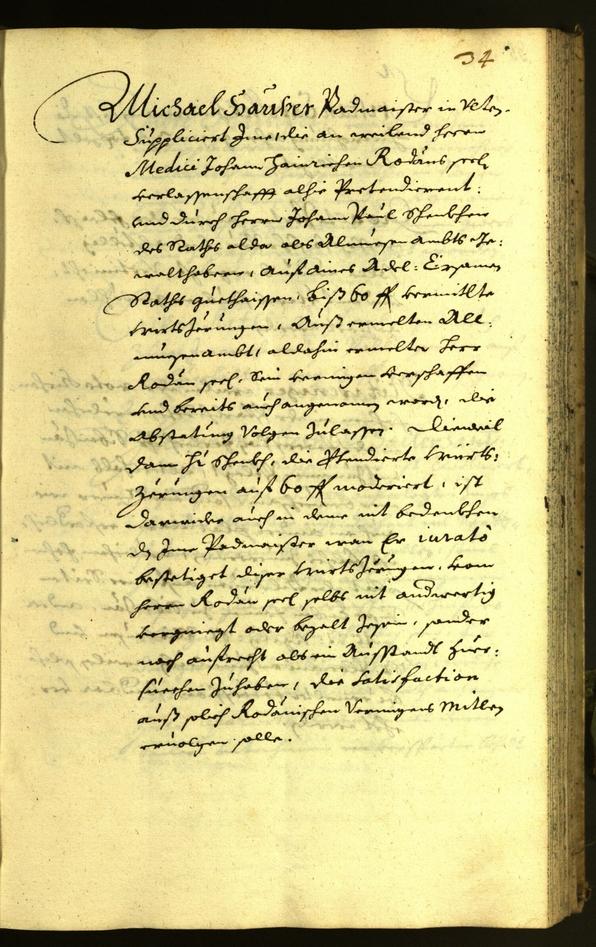 34
Michael Hauser Padmaister in Veten-
Suppliciert Ime, die an weilend Herrn
Medici Johann Hainrichen Rodans seel:
verlassenschafft alhie Pretendierent:
und durch Herrn Johann Paul Schenkhen
des Raths alda als Almuesen Ambts Ge:
walthabern, auf aines Edl: Ersamen
Raths guethaissen, biß 60 fl vermitlte
würtszörungen, auß ermelten All:
muesenambt, aldahin ermelter Herr
Rodan seel: sein vermigen verschaffen
und bereits auch angenomen worden, die
Abstatung Volgen zulassen. Dieweil
dann Hr Schenkh, die Pretendierte würts:
zörungen auf 60 fl moderiert, ist
darwider auch in deme nit bedenkhen
dz Ime Padmaister wan Er iurato
bestetiget diser würtszörungen, vom
Herrn Rodan seel selbs nit anderwertig
vergniegt oder bezalt zesein, sonder
noch aufrecht als ein Ausstandt
zuhaben, die satisfaction
auß solch Rodanischen Vermigens Mitlen
ervolgen solle.